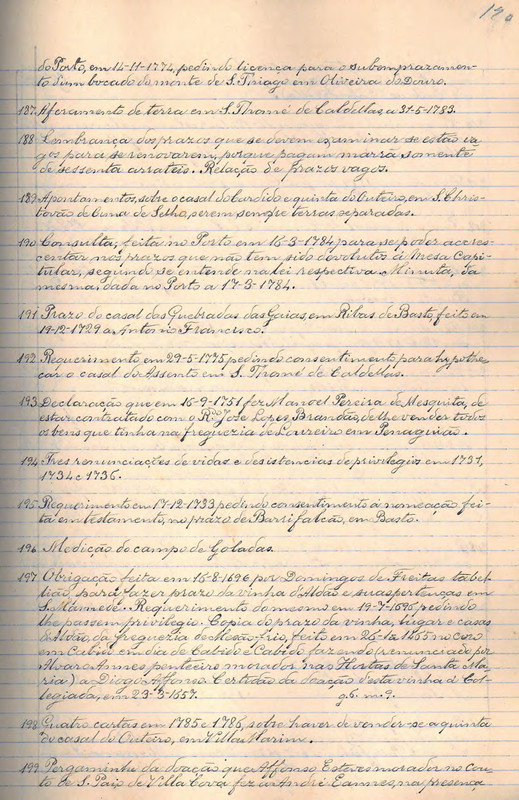 do Porto, em 14-11-1774, pedindo licença para o subemprazamen-
to d'um bocado do monte de S. Thiago em Oliveira do Douro.
187. Aforamento de terra em S. Thomé de Caldellas, a 31-5-1783.
188 Lembrança dos prazos que se devem examinar se estão va-
gos para se renovarem, porque pagam marrã sómente
de sessenta arrateis. Relação de prazos vagos.
189 Apontamentos, sobre o casal do Cardido e quinta do Outeiro, em S. Chris-
tovão de Cima de Selho, serem sempre terras separadas.
190 Consulta, feita no Porto em 16-3-1784, para se poder acres-
centar nos prazos que não tem sido devolutos á Mesa Capi-
tular, segundo se entende na lei respectiva. Minuta, da
mesma, dada no Porto a 17-3-1784.
191 Prazo do casal das Quebradas das Gaias, em Ribas de Basto, feito em
19-12-1729 a Antonio Francisco.
192 Requerimento em 29-5-1775 pedindo consentimento para hypothe-
car o casal do Assento em S. Thomé de Caldellas.
193 Declaração que em 16-9-1751 fez Manoel Pereira de Mesquita, de
estar contratado com o Rdo José Lopes Brandão, de lhe vender todos
os bens que tinha na freguezia de Loureiro em Penaguião.
194 Tres renunciações de vidas e desistencias de privilegios em 1731,
1734 e 1736.
195 Requerimento em 17-12-1733 pedindo consentimento á nomeação fei-
ta em testamento, no prazo de Barrifalcão, em Basto.
196 Medição do campo de Goladas.
197 Obrigação feita em 16-8-1696 por Domingos de Freitas tabel-
lião, para fazer prazo da vinha d'Aldão e suas pertenças em
S. Mamede. Requerimento do mesmo em 19-7-1695 pedindo
lhe passem privilegio. Copia do prazo da vinha, lugar e casas
d'Aldão, da freguezia de Moção-frio, feito em 26-1a 1455 no coro
em Cubido em dia de Cabido e Cabido fazendo (renunciado por
Alvaro Annes ponteiro morador nas Hortas de Santa Ma-
ria) a Diogo Affonso. Certidão da doação d'esta vinha á Col-
legiada, em 23-3-1557.
198 Quatro cartas em 1785 e 1786, sobre haver de vender-se a quinta
do casal do Outeiro, em Villa Marim.
199 Pergaminho da doação que Affonso Esteves morador no Cou-
to de S. Paio de Villa Cova fez a André Eannes, na presença